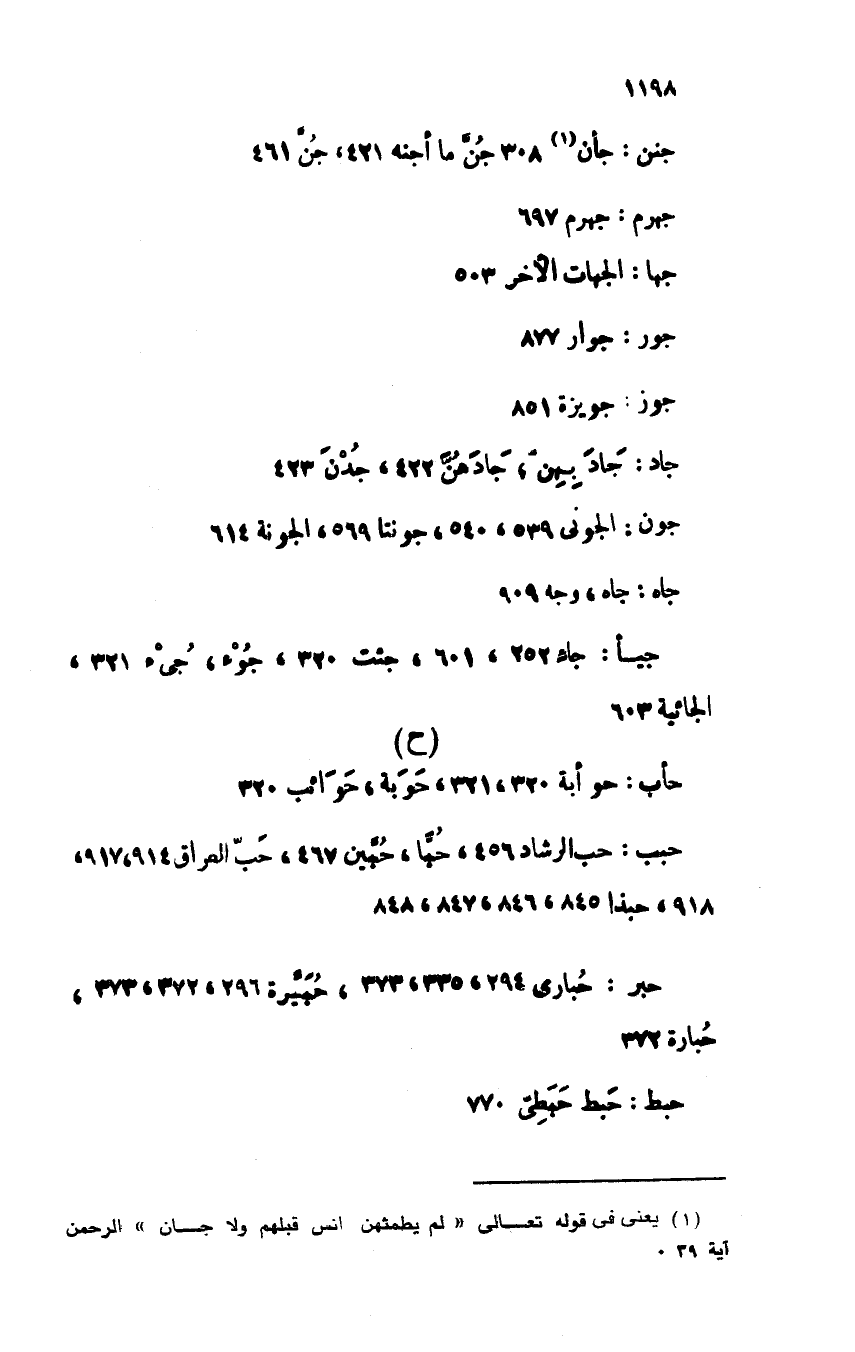 ١١٩٨
جنن : جأن(١) ٣٠٨ جُنَّ ما أجنه ٤٢١، جُنَّ ٤٦١
جهرم : جهرم ٦٩٧
جها : الجهات الأخر ٥٠٣
جور : جوار ٨٧٧
جوز : جويزة ٨٥١
جاد : جَادَ بِهِنَّ، جَادَهُنَّ ٤٢٢، جُدْنَ ٤٢٣
جون : الجونى ٥٣٩، ٥٤٠، جونتا ٥٦٩، الجونة ٦١٤
جاه : جاه، وجه ٩٠٩
جيأ : جاء ٢٥٢، ٦٠١، جئت ٣٢٠، جُوْء، جُىْء ٣٢١،
الجائية ٦٠٣
(ح)
حأب : حوأبة ٣٢٠، ٣٢١، حَوَبة، حَوَائب ٣٢٠
حبب : حب الرشاد ٤٥٦، حُبَّا، حُبَّين ٤٦٧، حَبّ العراق ٩١٤، ٩١٧،
٩١٨، حبذا ٨٤٥، ٨٤٦، ٨٤٧، ٨٤٨
حبر : حُبارى ٢٩٤، ٣٣٥، ٣٧٣، حُبَيَّرة ٢٩٦، ٣٧٢، ٣٧٣،
حُبارة ٣٧٢
حبط : حَبط حَبَطِىّ ٧٧٠
(١) يعنى فى قوله تعـــالى « لم يطمثهن انس قبلهم ولا جـــان » الرحمن
آية ٣٩ .